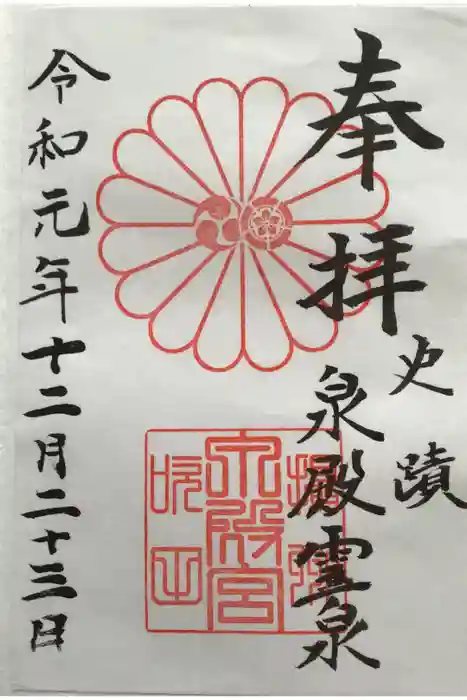 奉拝
史蹟
泉殿霊泉
泉殿宮
令和元年十二月二十三日